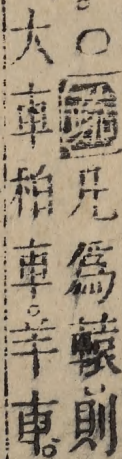 ○凡爲轅則
大車柏車羊車。